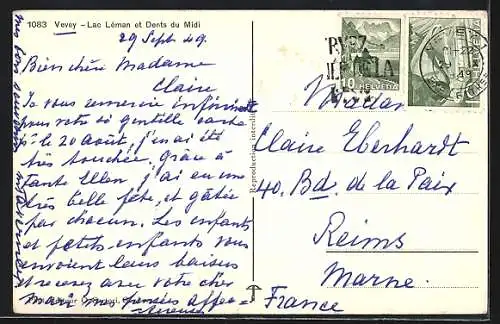 1083 Vevey – Lac Léman et Dents du Midi
29 Sept 49.
Bien chère Madame
Claire
Je vous remercie infiniment
pour votre si gentille carte
le 20 Août, j'ai été
très touchée, grâce à
tante Ellen, j'ai eu une
très belle fête, et gâtée
par chacun. Les enfants
et petits enfants vous
envoient leurs baisers
et recevez avec votre cher
mari mes pensées affec-
tueuses
Reproduction interdite
10 HELVETIA
HELVETIA
VEVEY
Madame
Claire Eberhardt
40. Bd. de la Paix
Reims
Marne.
France